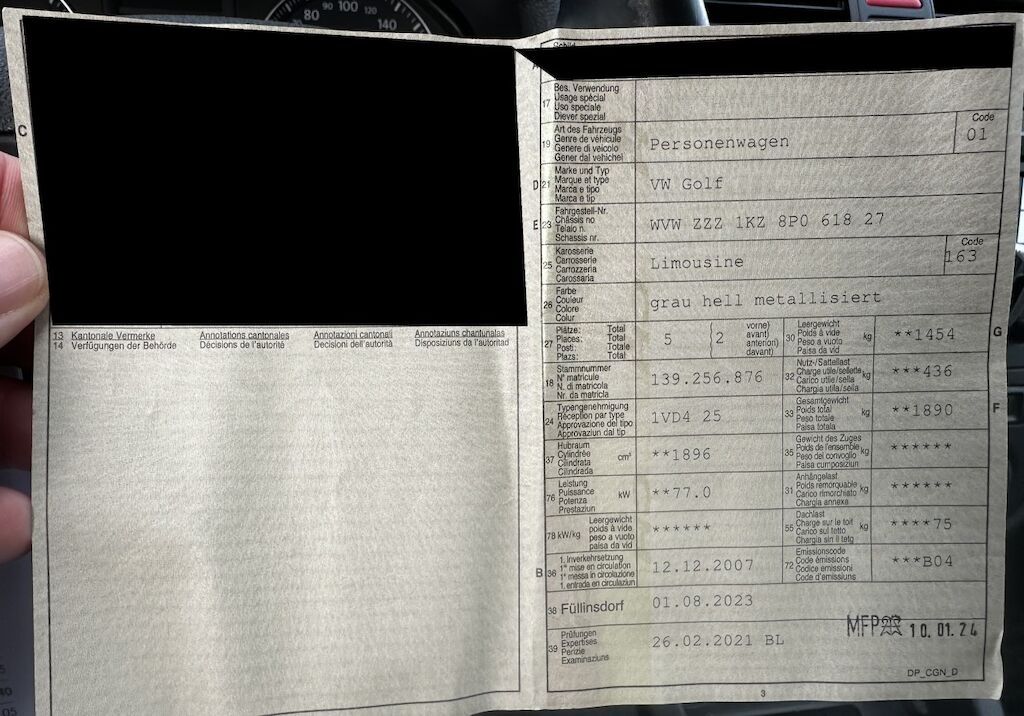 80
90
100
120
140
C
13 Kantonale Vermerke Annotations cantonales Annotazioni cantonali Annotaziuns chantunalas
14 Verfügungen der Behörde Décisions de l'autorité Decisioni dell'autorità Disposiziuns da l'autoritad
Schild
A
17 Bes. Verwendung
Usage spécial
Uso speciale
Diever spezial
19 Art des Fahrzeugs
Genre de véhicule
Genere di veicolo
Gener dal vehichel
Personenwagen
Code
01
D 21 Marke und Typ
Marque et type
Marca e tipo
Marca e tip
VW Golf
E 23 Fahrgestell-Nr.
Châssis no
Telaio n.
Schassis nr.
WVW ZZZ 1KZ 8P0 618 27
25 Karosserie
Carrosserie
Carrozzeria
Carossaria
Limousine
Code
163
26 Farbe
Couleur
Colore
Colur
grau hell metallisiert
27 Plätze: Total
Places: Total
Posti: Totale
Plazs: Total
5 (2 vorne)
avant)
anteriori)
davant)
30 Leergewicht
Poids à vide
Peso a vuoto
Paisa da vid
kg
**1454
G
18 Stammnummer
N° matricule
N. di matricola
Nr. da matricla
139.256.876
32 Nutz-/Sattellast
Charge utile/sellette
Carico utile/sella
Chargia utila/sella
kg
***436
24 Typengenehmigung
Réception par type
Approvazione del tipo
Approvaziun dal tip
1VD4 25
33 Gesamtgewicht
Poids total
Peso totale
Paisa totala
kg
**1890
F
37 Hubraum
Cylindrée
Cilindrata
Cilindrada
cm³
**1896
35 Gewicht des Zuges
Poids de l'ensemble
Peso del convoglio
Paisa cumposiziun
kg
******
76 Leistung
Puissance
Potenza
Prestaziun
kW
**77.0
31 Anhängelast
Poids remorquable
Carico rimorchiato
Chargia annexa
kg
******
78 kW/kg Leergewicht
poids à vide
peso a vuoto
paisa da vid
******
55 Dachlast
Charge sur le toit
Carico sul tetto
Chargia sin il tetg
kg
****75
B 36 1. Inverkehrsetzung
1re mise en circulation
1a messa in circolazione
1. entrada en circulaziun
12.12.2007
72 Emissionscode
Code émissions
Codice emissioni
Code d'emissiuns
***B04
38 Füllinsdorf 01.08.2023
39 Prüfungen
Expertises
Perizie
Examinaziuns
26.02.2021 BL
MFP 10.01.24
DP_CGN_D
3